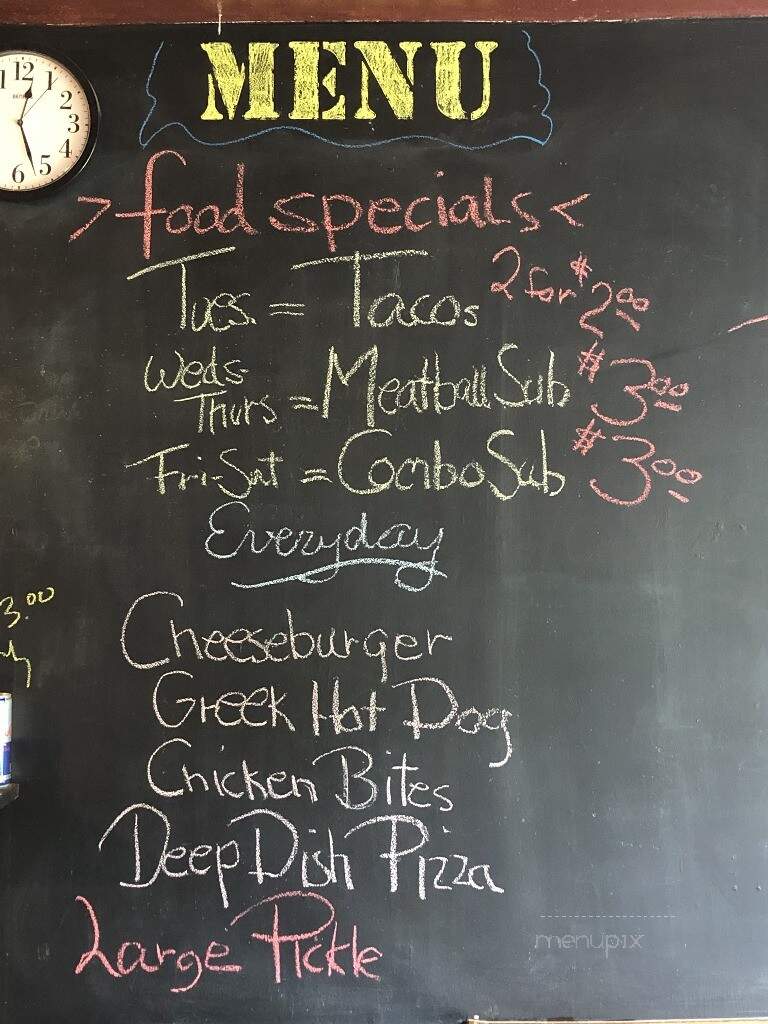 MENU
12
1
2
3
4
5
6
>food specials<
Tues. = Tacos 2 for $2.00
Weds-
Thurs = Meatball Sub $3.00
Fri-Sat = Combo Sub $3.00
Everyday
3.00
Cheeseburger
Greek Hot Dog
Chicken Bites
Deep Dish Pizza
Large Pickle
menupix